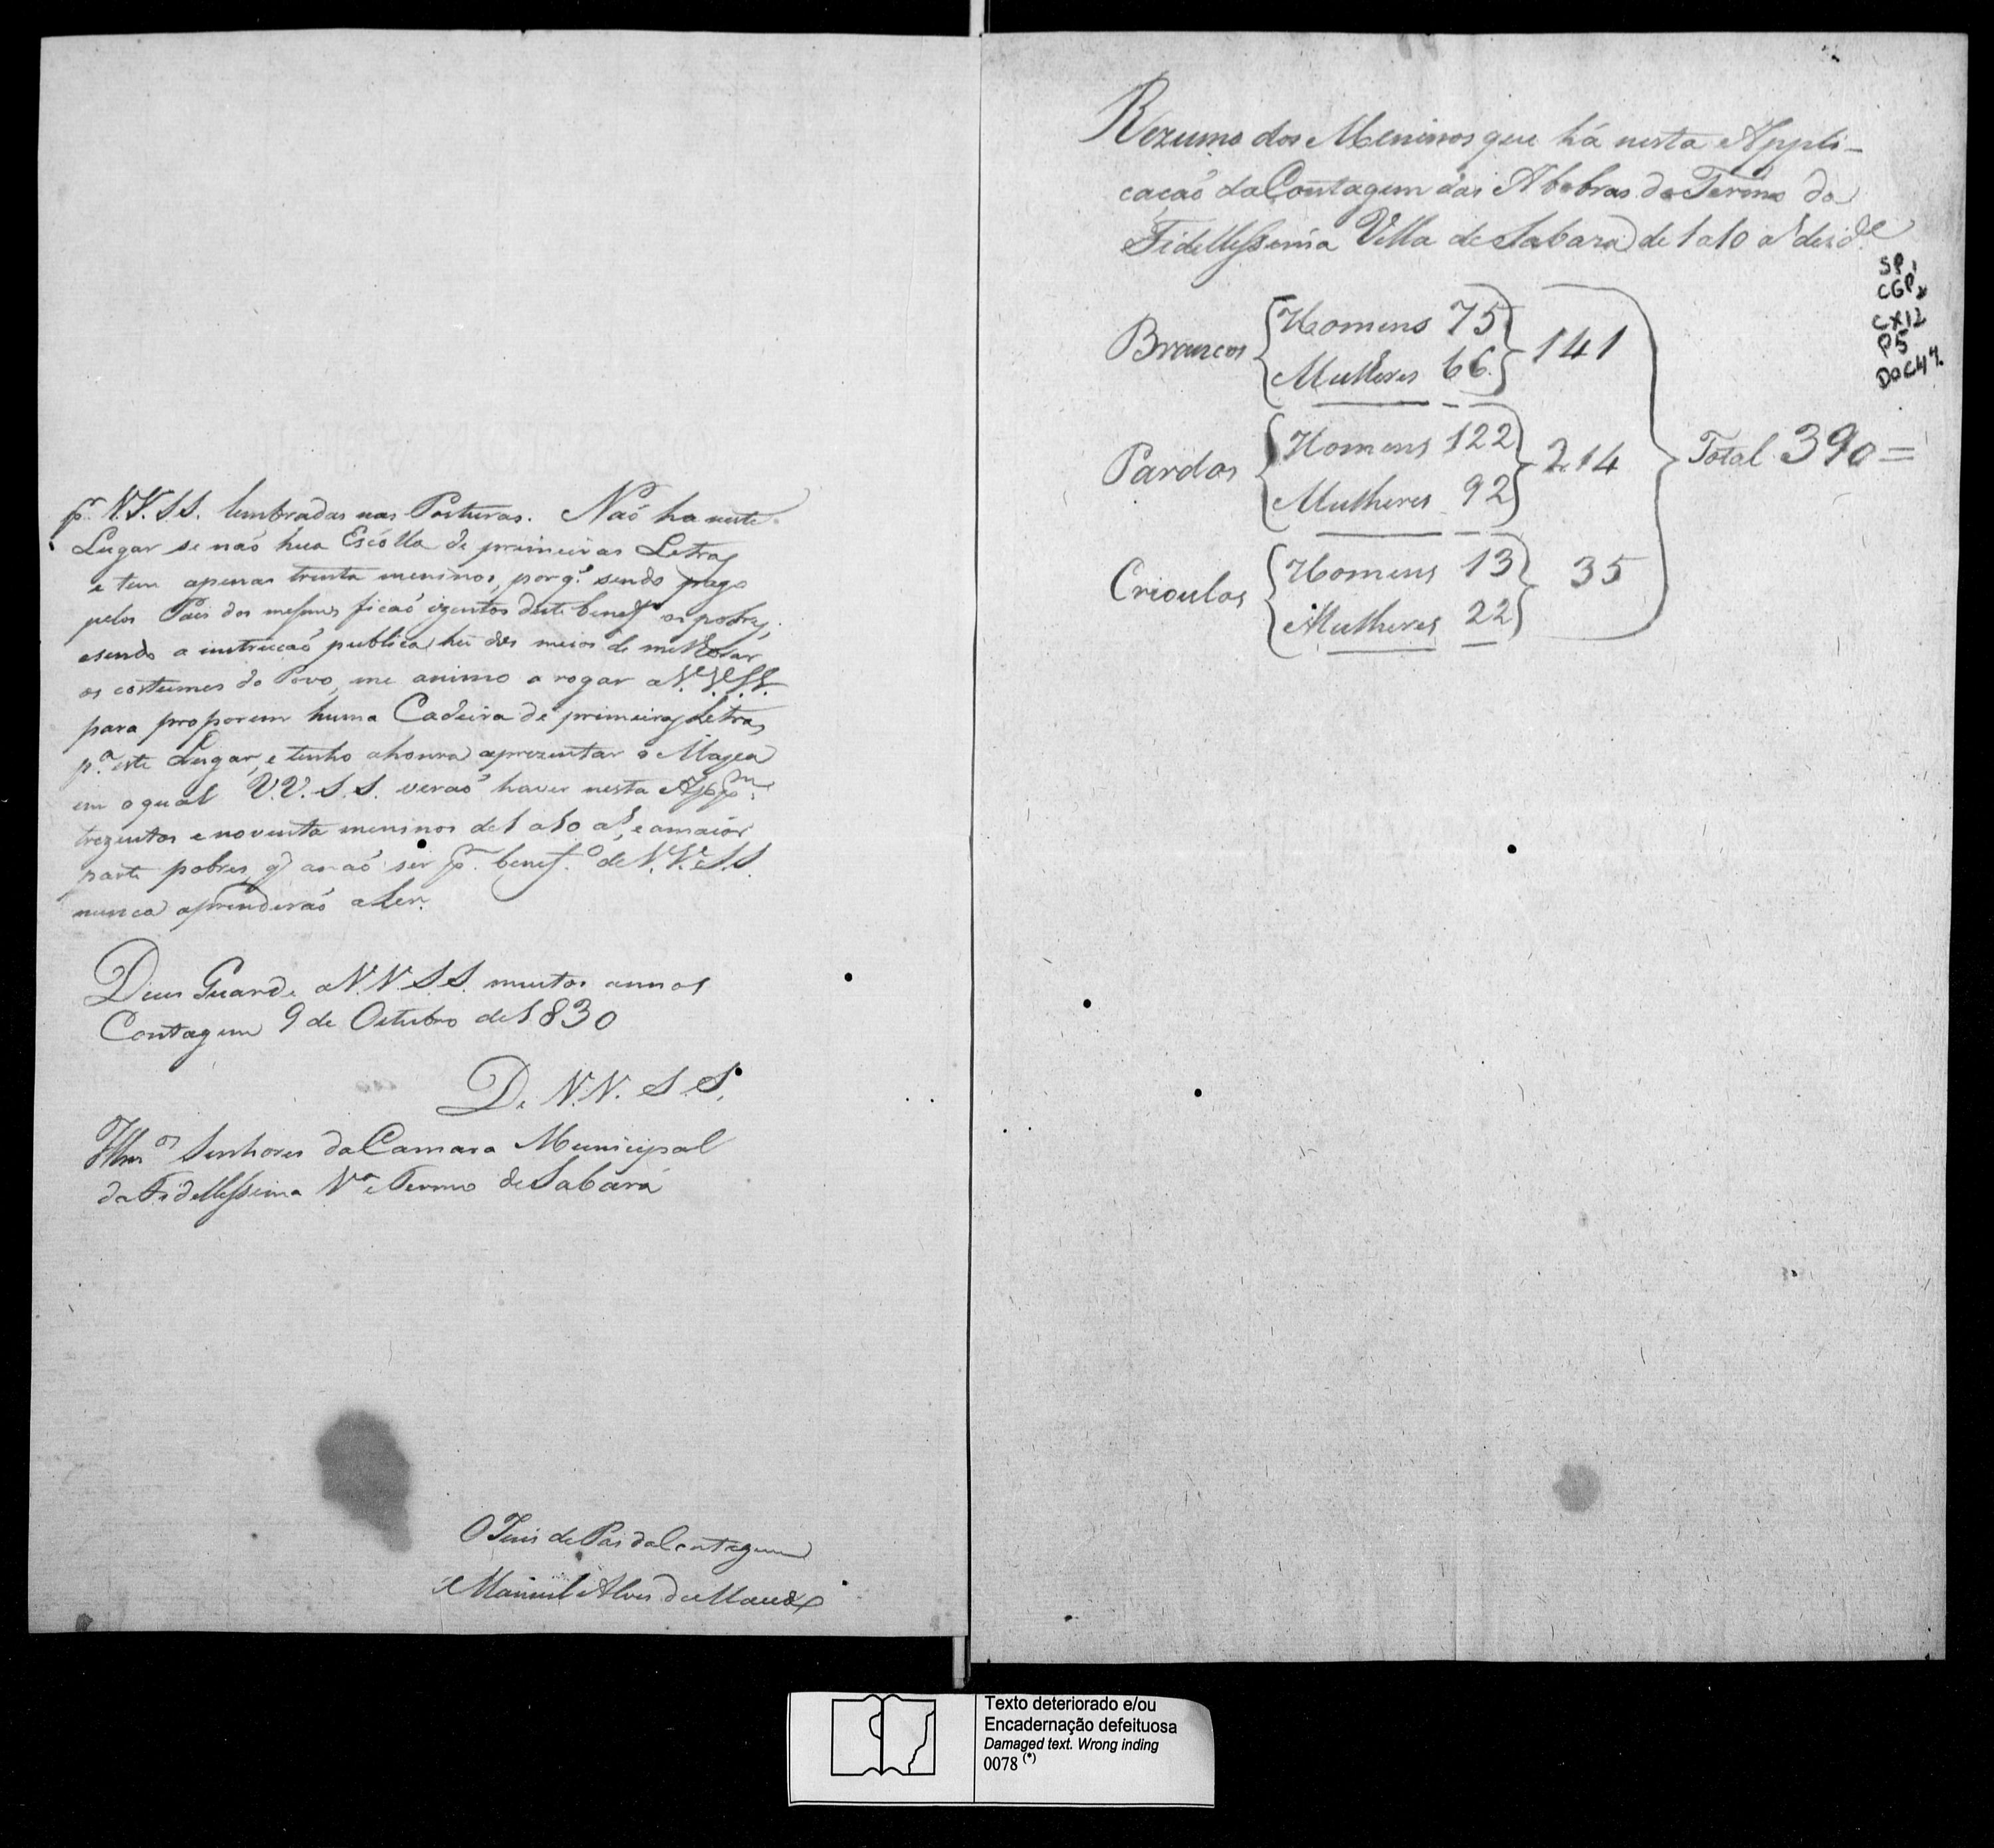 pr. V.V.S.S. lembradas nas Posturas. Naõ ha neste
Lugar se naõ hua Escólla de primeiras Letras
e tem apenas trinta meninos, porq.' sendo pago
pelos Pais dos mesmos ficaõ izentos deste benef.º os pobres,
esendo a instrucaõ publica hú dos meios de melhorar
os costumes do Povo, me animo a rogar a V.V.S.S.
para proporem huma Cadeira de primeiras Letras
p.a este Lugar, e tenho ahonra aprezentar o Mapa
em oqual V.V.S.S. veraõ haver nesta Appm.
trezentos e noventa meninos de1 a10 a.s, e amaiór
parte pobres, q' anaõ ser pr. benef.º de V.V.S.S.
nunca aprenderáõ aLer.
Deus Guarde aV.V.S.S. muitos annos
Contagem 9 de Outubro de1830
De V.V.S.S.
Illmos Senhores daCamara Municipal
da Fidellessima Va e Termo deSabará
O Juis de Pas daContagem
Manuel Alves de Macedo
Rezumo dos Meninos que há nesta Appli-
cacaõ daContagem das Abobras do Termo da
Fidellessima Villa de Sabara de 1 a10 as deid.de
SP,
CGP,
CX12
P5
DOC 47.
Brancos { Homens 75 } 141
Mulheres 66.
Pardos { Homens 122 } 214
Mulheres 92
Total 390=
Crioulos { Homens 13 } 35
Mulheres 22
Texto deteriorado e/ou
Encadernação defeituosa
Damaged text. Wrong inding
0078 (*)